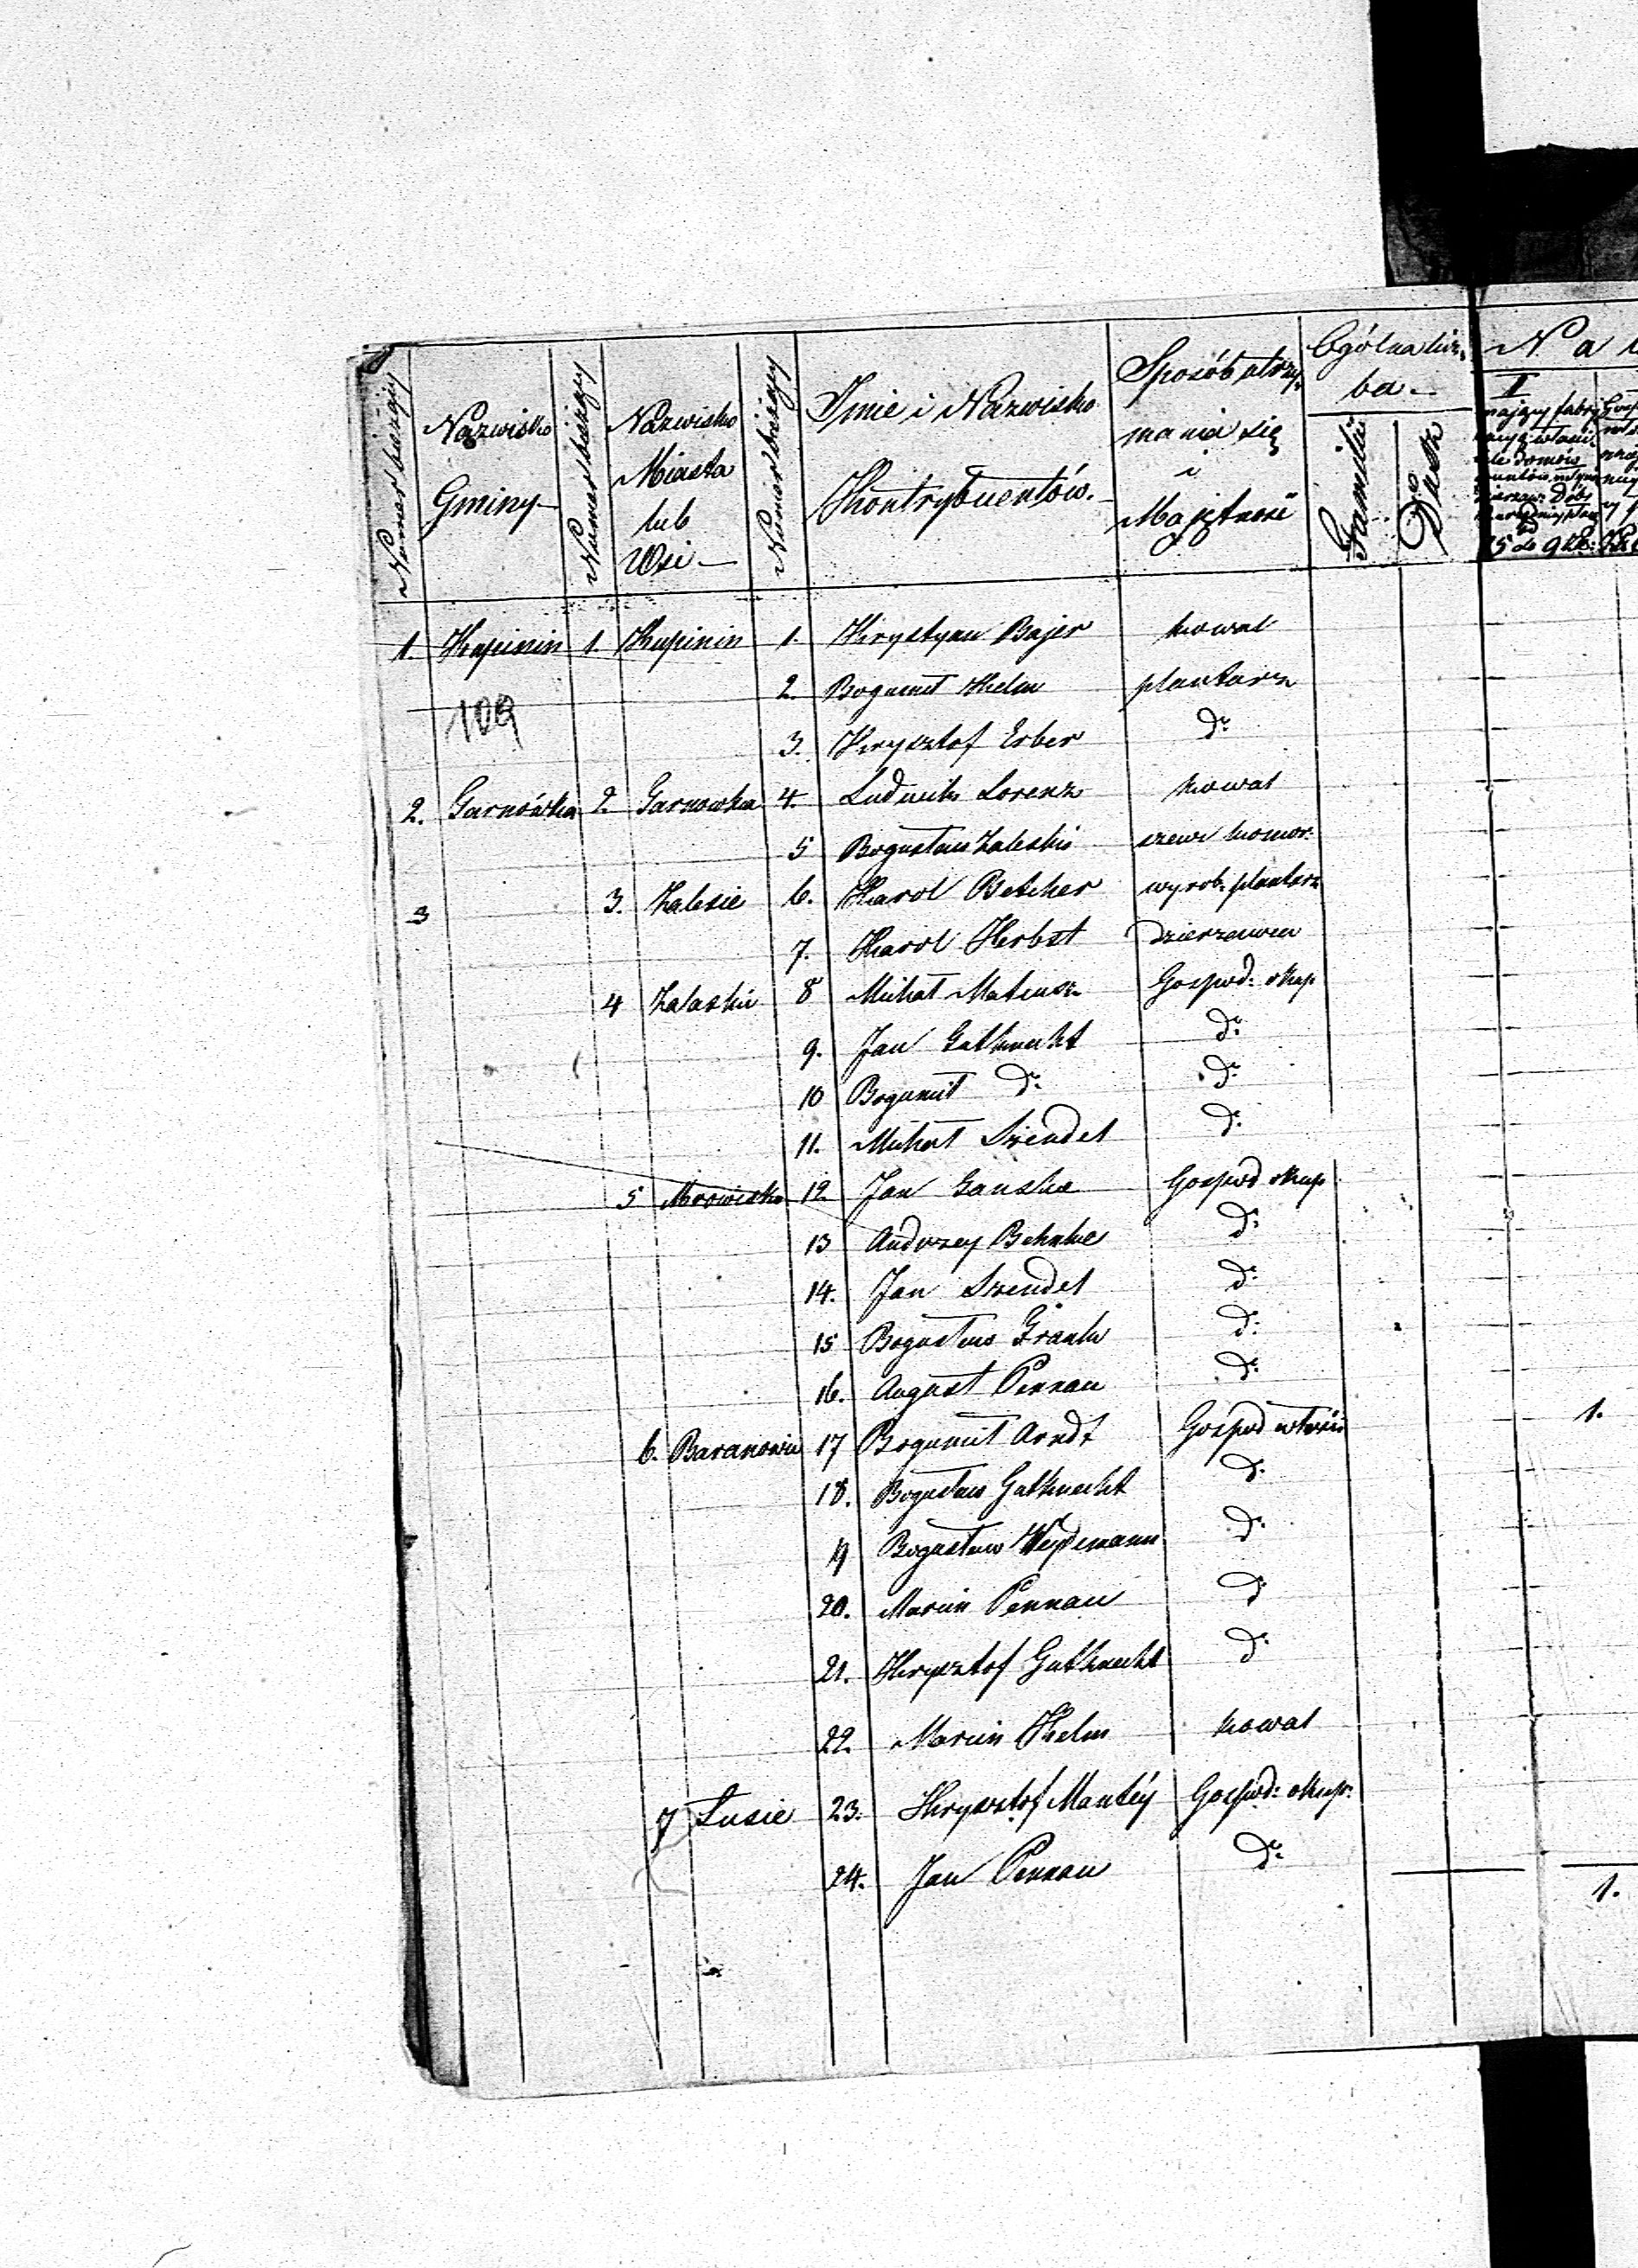 Numer bieżący
Nazwisko
Gminy
Numer bieżący
Nazwisko
Miasta
lub
Wsi
Numer bieżący
Imie i Nazwisko
Kontrybuentów.
Sposób utrzy-
mania się
i
Majątność
Ogólna licz-
ba
Familii
Dusz
N a
I
5 do 9
1. Krzpinin 1. Kupinin 1. Krystyan Bajer kowal
109
2. Bogumił Helm plantarz
3. Krysztof Erber do
2. Garnówka 2. Garnowka 4. Ludwik Lorenz kowal
5 Bogusław Zaleski szewc komor.
3 3. Zalesie 6. Karol Betcher wyrob. plantarz
7. Karol Herbst dzierzawca
4 Zalaski 8 Michał Mateusz Gospod: okup
9. Jan Gutknecht do
10 Bogumił do do
11. Michał Szendel do
5 Mrowisko 12. Jan Ganske Gospod okup
13 Andrzey Behnke do
14. Jan Szendel do
15 Bogusław Gränk do
16. August Pennau do
6. Baranowiec 17 Bogumił Arndt Gospod włości 1.
18. Bogusław Gutknecht do
19 Bogusław Weydemann do
20. Marcin Pennau do
21. Krysztof Gutknecht do
22. Marcin Helm kowal
7 Lusie 23. Krysztof Mantey Gospod: okup.
24. Jan Pennau do
1.